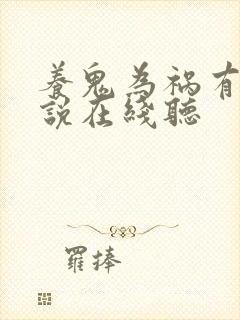 養鬼為禍有
說在綫聽
羅捧